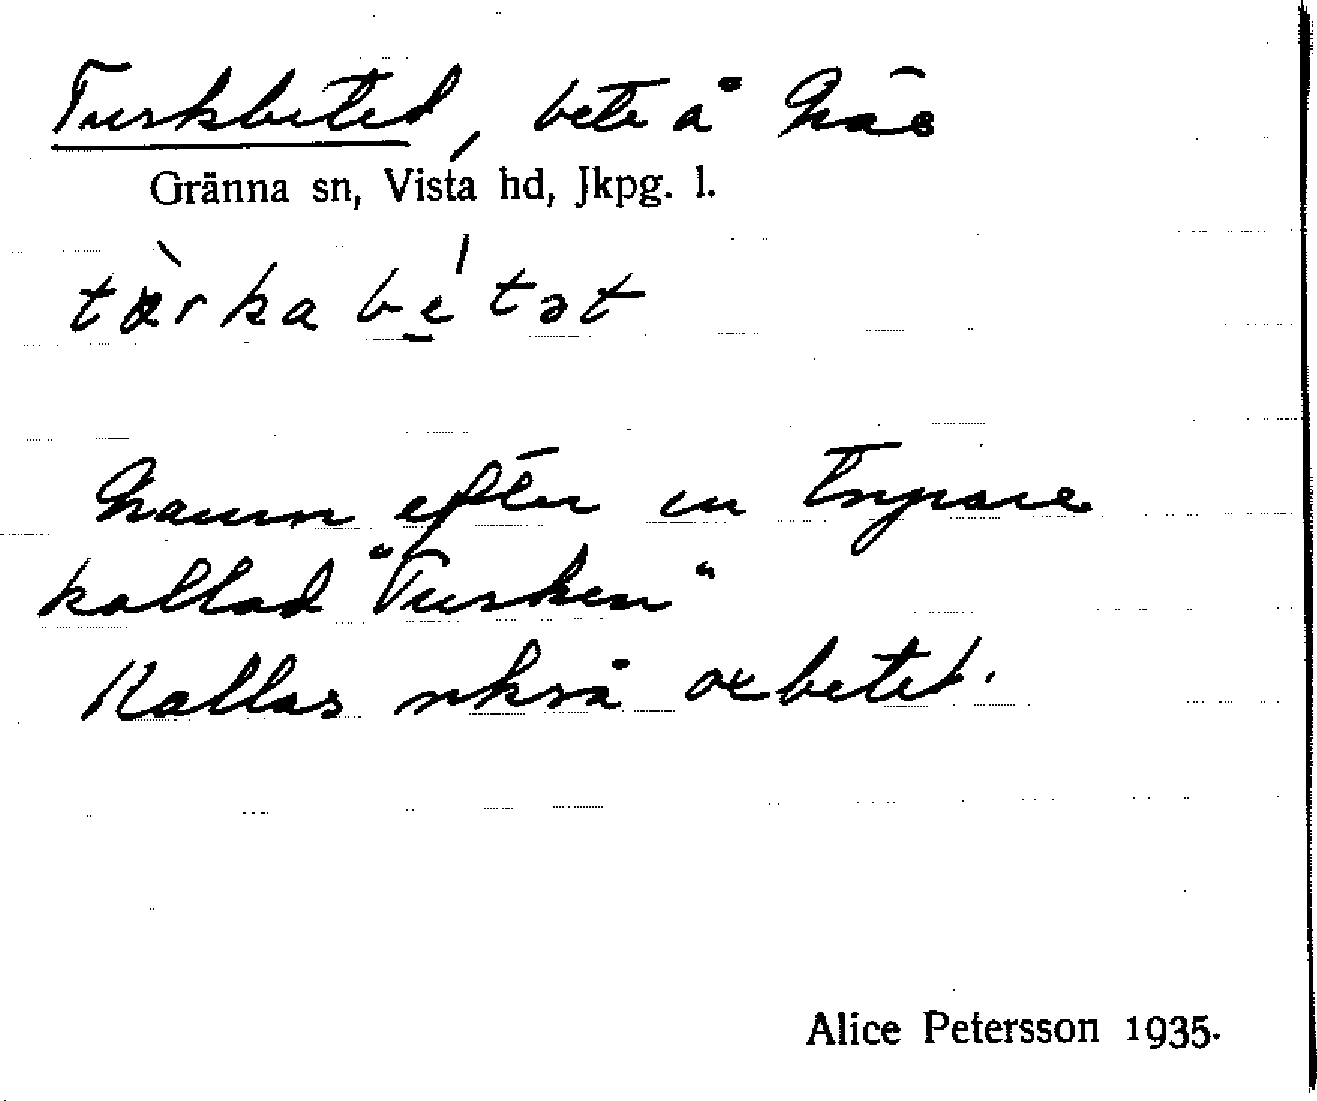 Turkbetet, bete å Näs
Gränna sn, Vista hd, Jkpg. l.
tærkabe̱tət
Namn efter en Torpare
kallad "Turken"
Kallas också oxbetet.
Alice Petersson 1935.